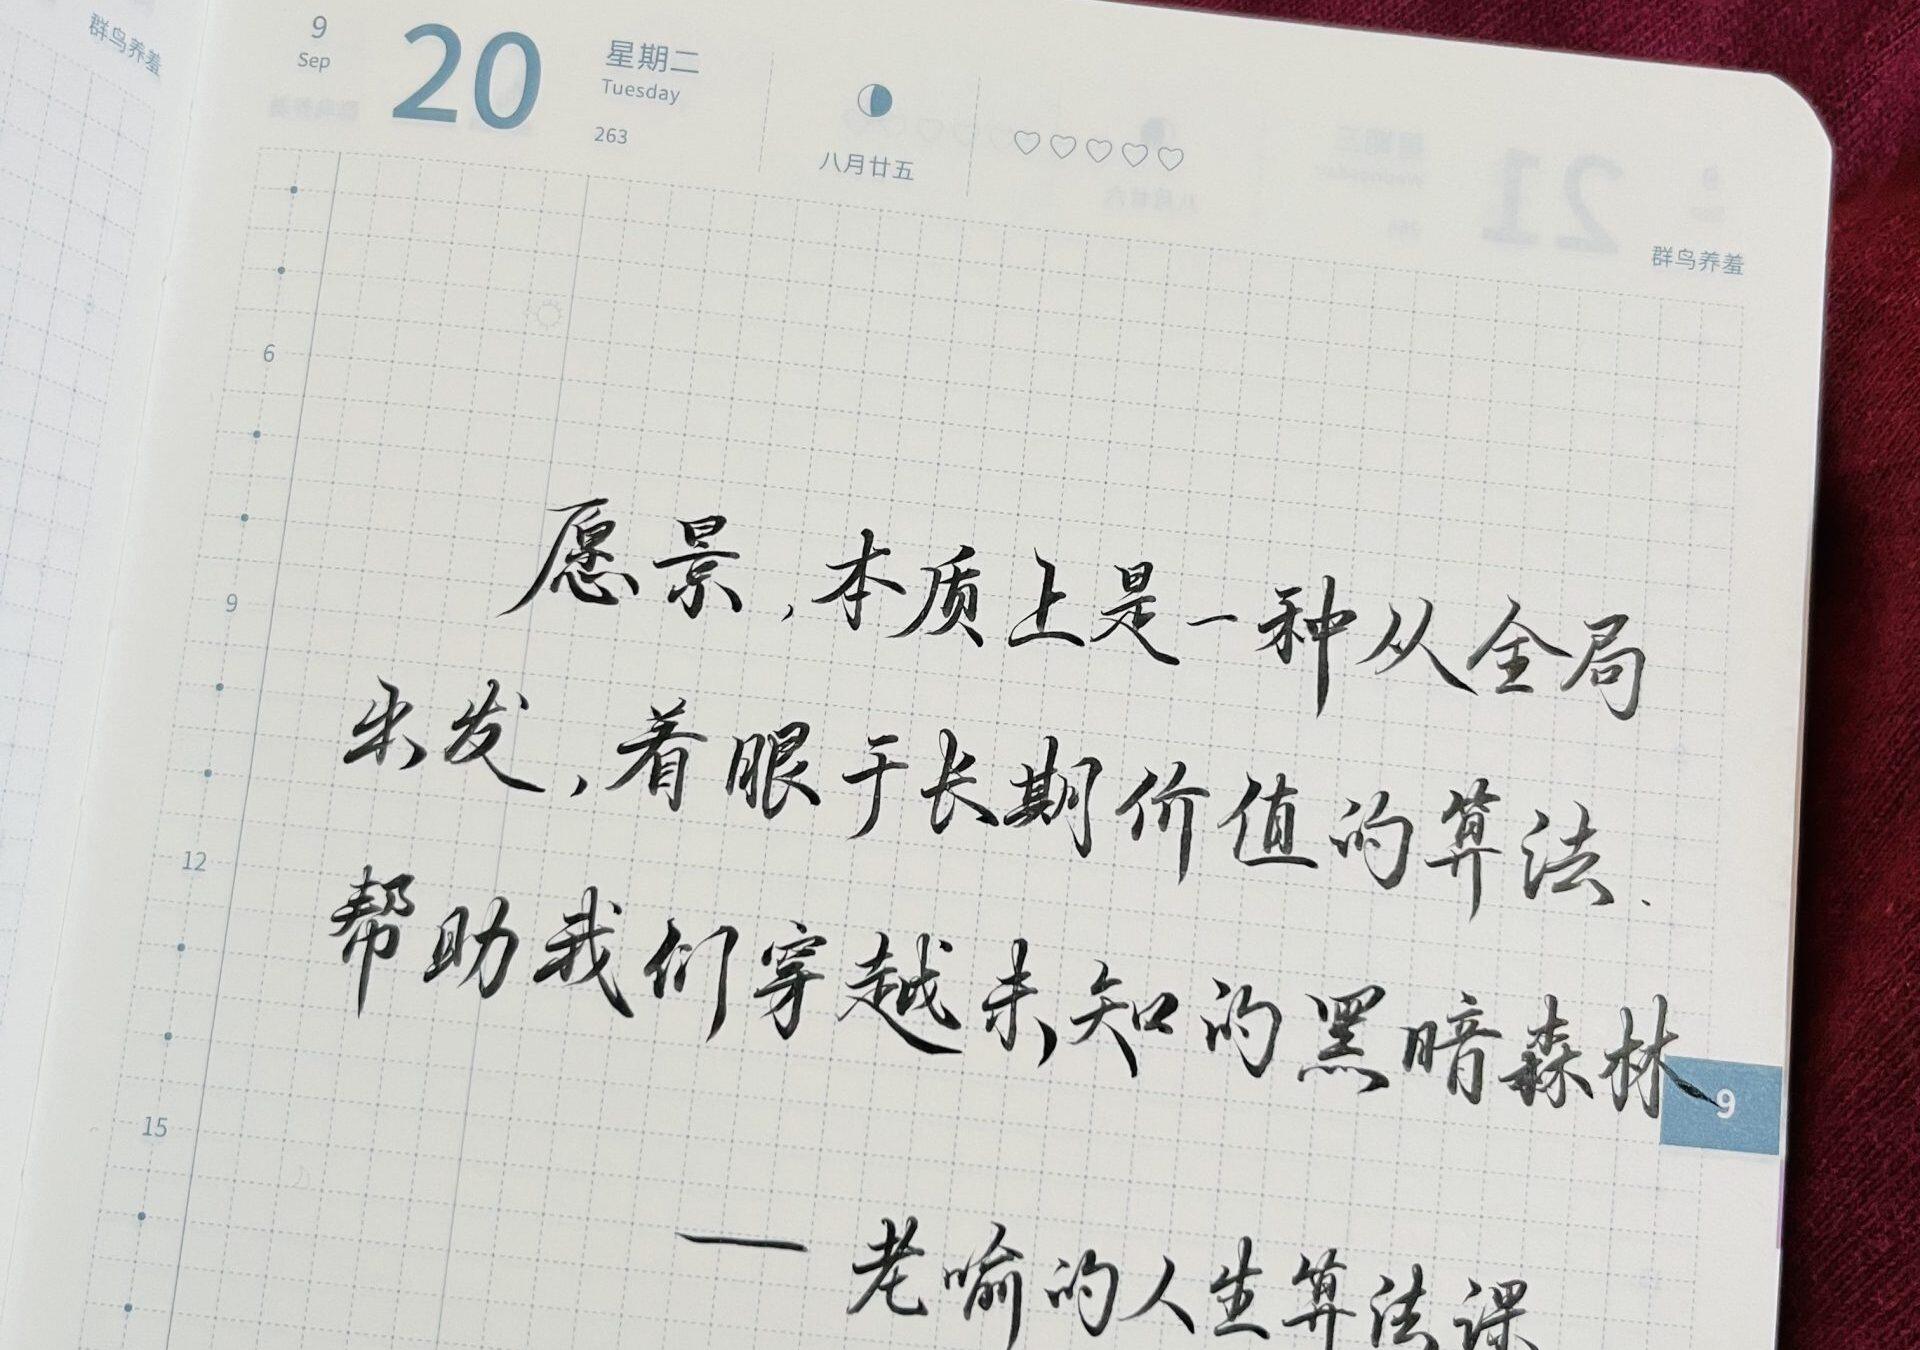 群鸟养羞
9
Sep
20
星期二
Tuesday
263
八月廿五
群鸟养羞
6
9
12
15
愿景,本质上是一种从全局
出发,着眼于长期价值的算法.
帮助我们穿越未知的黑暗森林
9
— 老喻的人生算法课